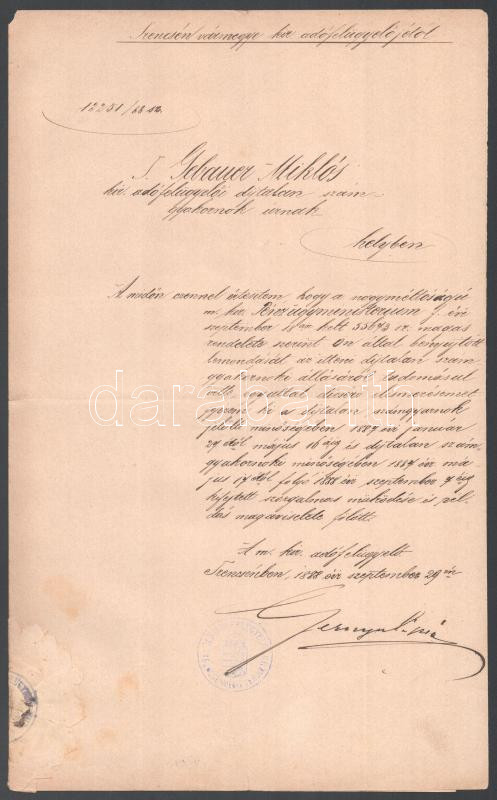 Trencsén vármegye kir. adófelügyelőjétől
12251/88 sz.
T. Gebauer Miklós
kir. adófelügyelői díjtalan szám-
gyakornok úrnak
helyben
A midőn ezennel értesítem hogy a nagyméltóságú
m. kir. Pénzügyministerium f. év
szeptember kelt 55673 sz. magas
rendelete szerint Ön által benyujtott
lemondását az itteni díjtalan szám
gyakornoki állásáról tudomásul
vette, egyuttal elismerésemet
fejezem ki a díjtalan
jelölt minőségében 1887 évi január
27 től május 16 áig és díjtalan szám-
gyakornoki minőségében 1887 évi má-
jus 17 től folyó 1888 évi szeptember áig
kifejtett szorgalmas müködése és pél-
dás magaviselete fölött.
A m. kir. adófelügyelő.
Trencsénben, 1888 évi szeptember 29 én
darabanth